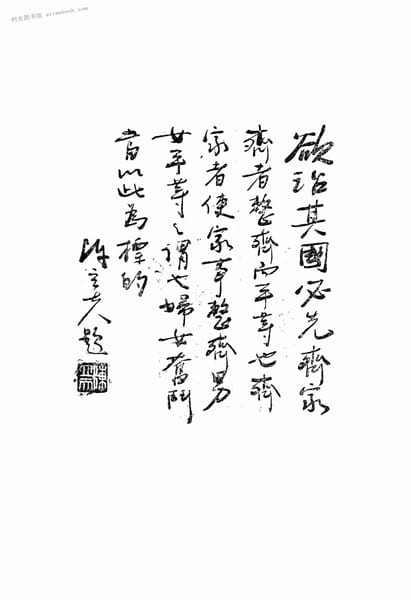 时光图书馆 atimebook.com
欲治其國必先齊家
齊者整齊而平等也齊
家者使家事整齊男
女平等之謂也婦女奮鬥
當以此為標的
陳立夫題